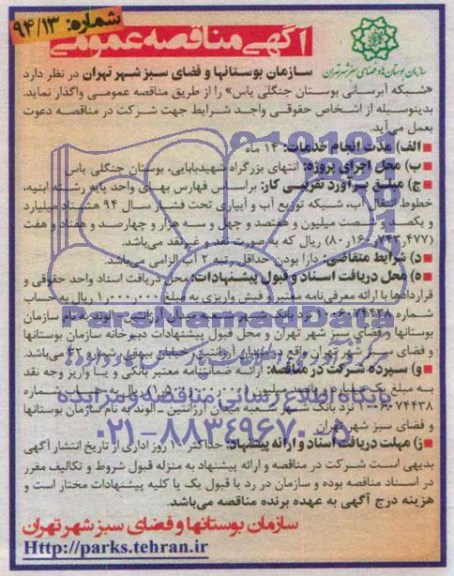 شماره: ۹۴/۱۳
آگهی مناقصه عمومی
سازمان بوستانها و فضای سبز شهر تهران
سازمان بوستانها و فضای سبز شهر تهران در نظر دارد
«شبکه آبرسانی بوستان جنگلی یاس» را از طریق مناقصه عمومی واگذار نماید.
بدینوسیله از اشخاص حقوقی واجد شرایط جهت شرکت در مناقصه دعوت
بعمل می‌آید.
الف) مدت انجام خدمات: ۱۴ ماه
ب) محل اجرای پروژه: انتهای بزرگراه شهیدبابایی، بوستان جنگلی یاس
ج) مبلغ برآورد تقریبی کار: براساس فهارس بهای واحد پایه رشته ابنیه،
خطوط انتقال آب، شبکه توزیع آب و آبیاری تحت فشار سال ۹۴ هشتاد میلیارد
و یکصد و شصت میلیون و هفتصد و چهل و سه هزار و چهارصد و هفتاد و هفت
(۸۰,۱۶۰,۷۴۳,۴۷۷) ریال که به صورت نقد و غیرنقد می‌باشد.
د) شرایط متقاضی: دارا بودن حداقل رتبه ۲ آب الزامی می‌باشد.
ه) محل دریافت اسناد و قبول پیشنهادات: محل دریافت اسناد واحد حقوقی و
قراردادها با ارائه معرفی‌نامه معتبر و فیش واریزی به مبلغ ۱,۰۰۰,۰۰۰ ریال به حساب
شماره ۱۰۰۶۰۷۴۴۳۸ نزد بانک شهر شعبه میدان آرژانتین - الوند به نام سازمان
بوستانها و فضای سبز شهر تهران و محل قبول پیشنهادات دبیرخانه سازمان بوستانها
و فضای سبز شهر تهران واقع در میدان آرژانتین خیابان بیهقی شماره ۴۲ می‌باشد.
و) سپرده شرکت در مناقصه: ارائه ضمانتنامه معتبر بانکی و یا واریز وجه نقد
به مبلغ یک میلیارد و پانصد میلیون ریال به حساب شماره
۱۰۰۶۰۷۴۴۳۸ نزد بانک شهر شعبه میدان آرژانتین - الوند به نام سازمان بوستانها
و فضای سبز شهر تهران
ز) مهلت دریافت اسناد و ارائه پیشنهاد: حداکثر ۱۰ روز اداری از تاریخ انتشار آگهی
بدیهی است شرکت در مناقصه و ارائه پیشنهاد به منزله قبول شروط و تکالیف مقرر
در اسناد مناقصه بوده و سازمان در رد یا قبول یک یا کلیه پیشنهادات مختار است و
هزینه درج آگهی به عهده برنده مناقصه می‌باشد.
سازمان بوستانها و فضای سبز شهر تهران
Http://parks.tehran.ir
ParsNamadData
پایگاه اطلاع رسانی مناقصه و مزایده
۰۲۱-۸۸۳۴۹۶۷۰-۵